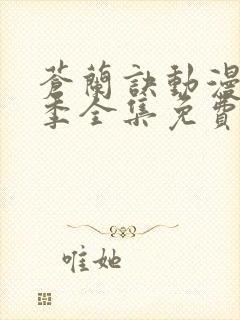 蒼蘭訣動漫
季全集免費
唯她